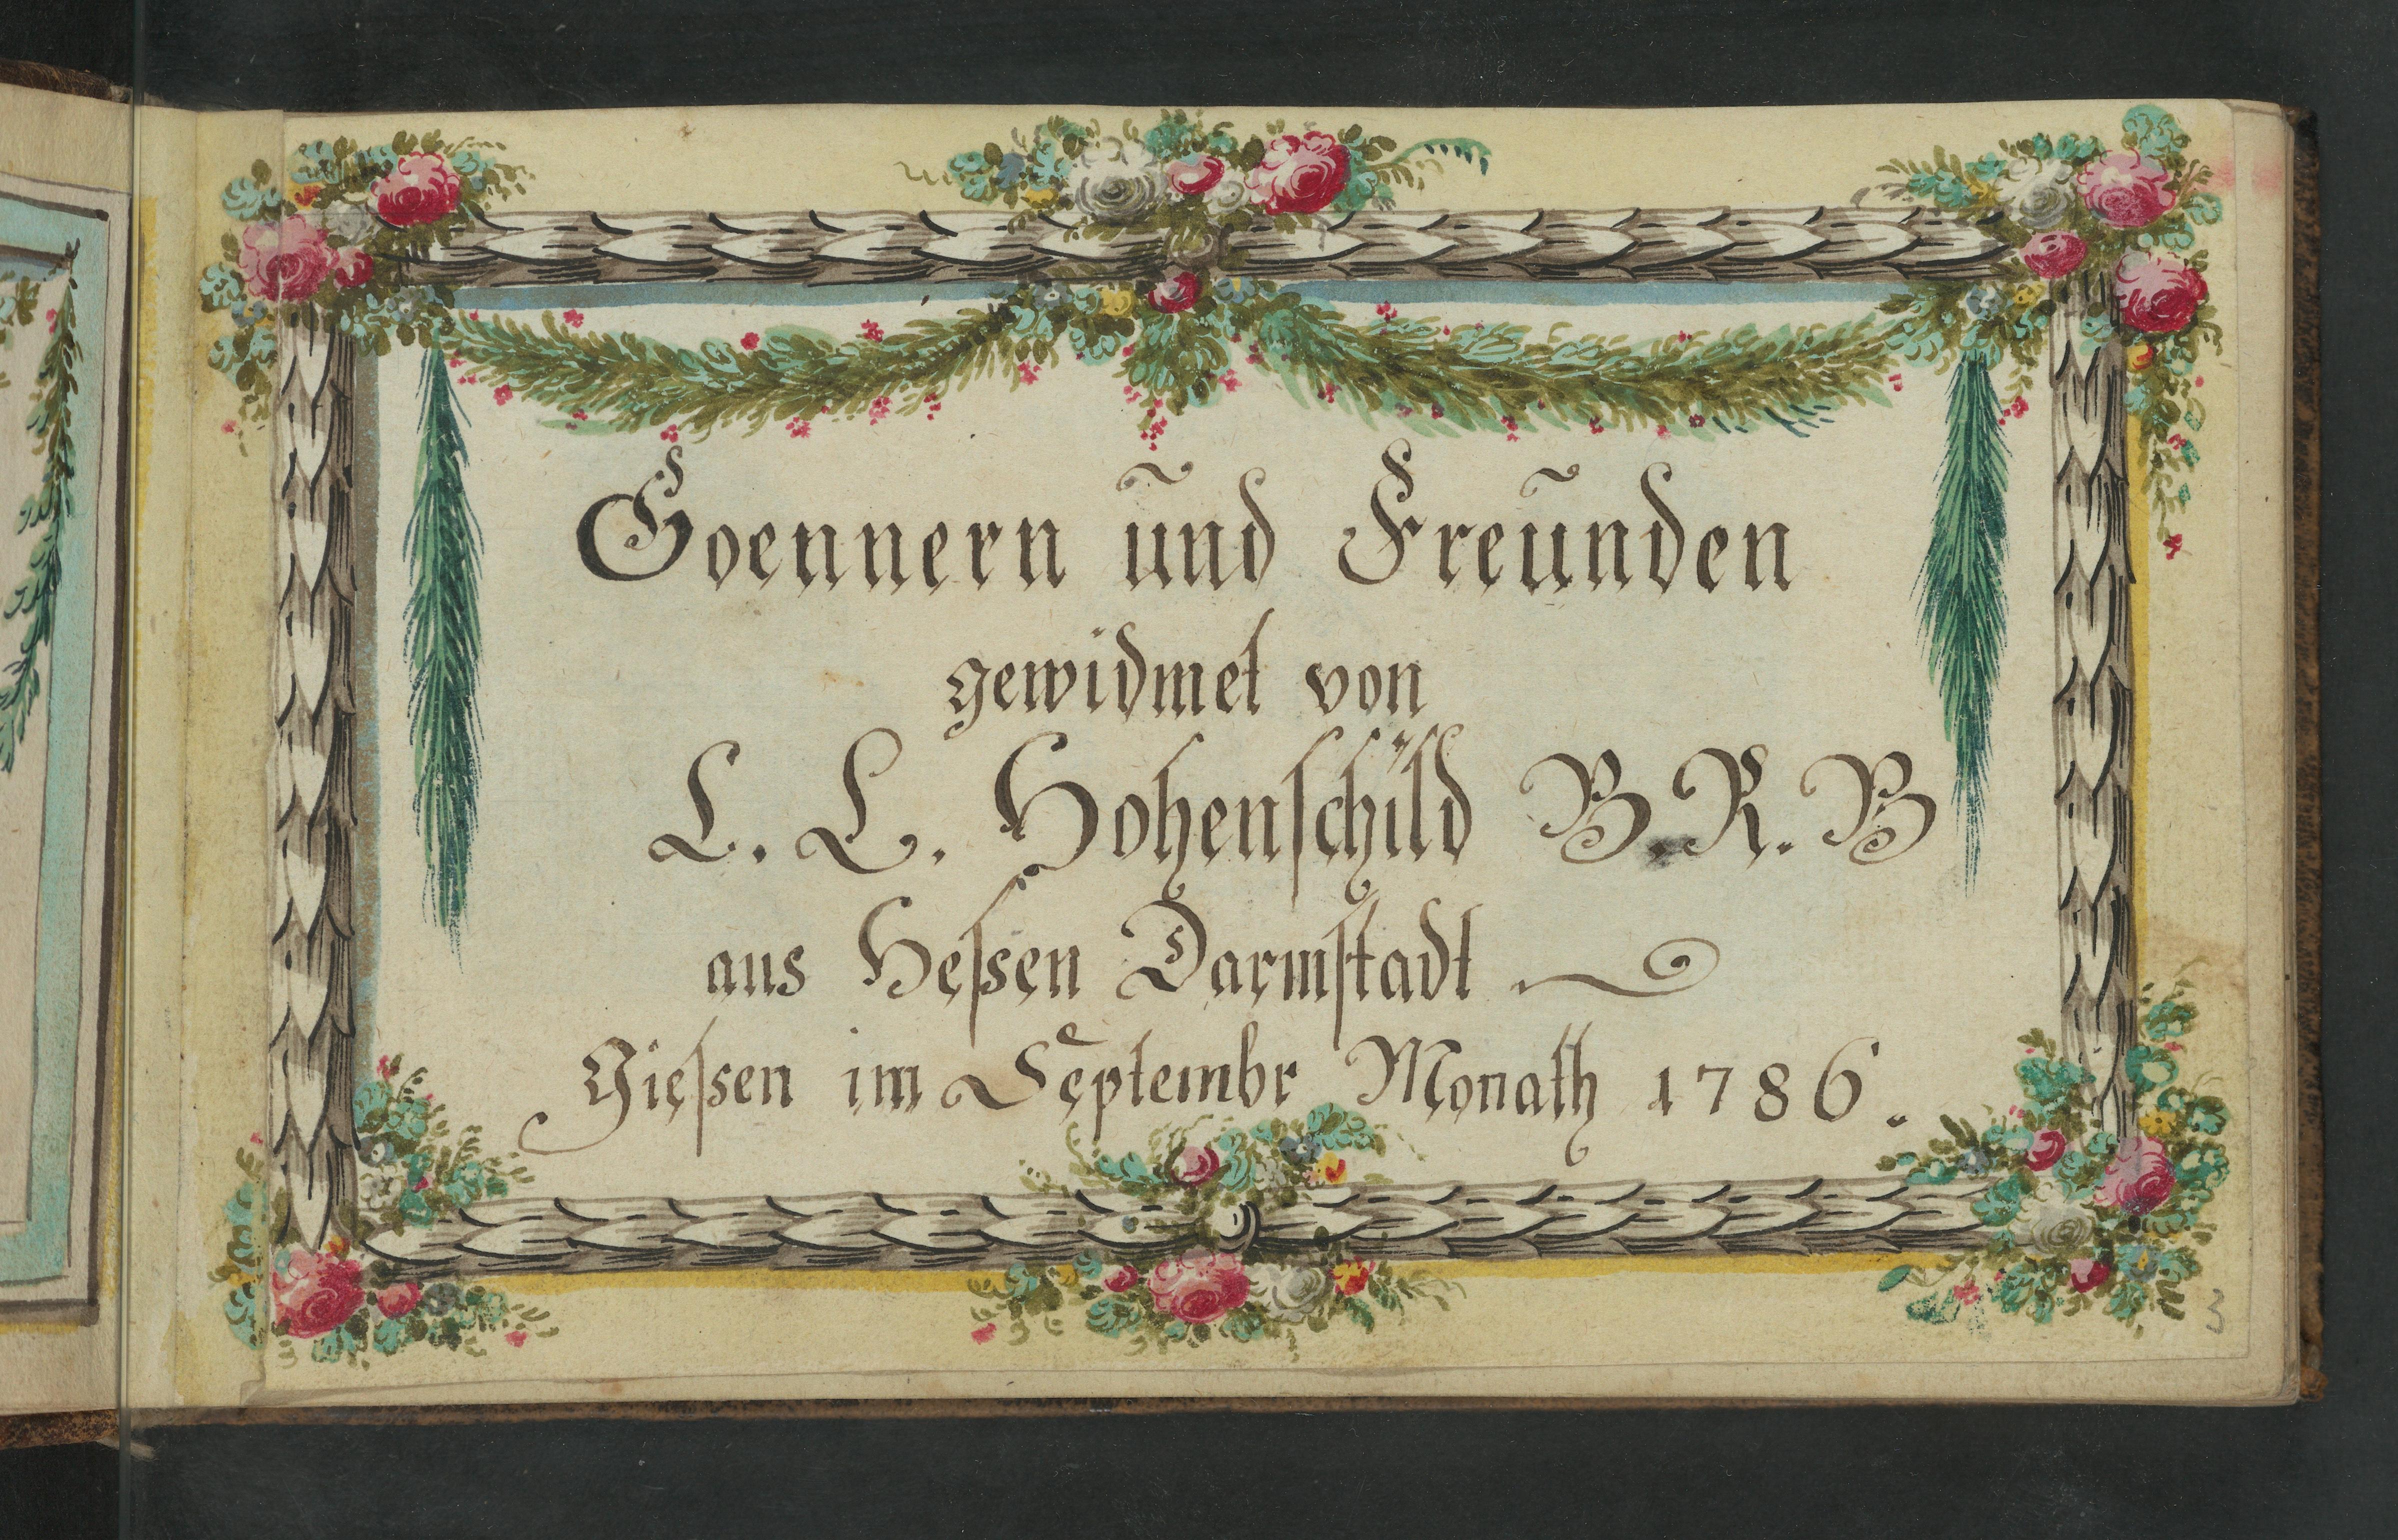 Goennern und Freunden
gewidmet von
L. L. Hohenschild B. R. B
aus Hessen Darmstadt
Giessen im Septembr Monath 1786.
3